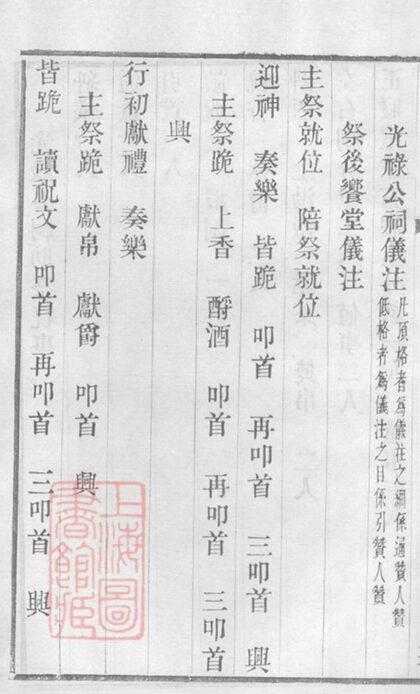 光祿公祠儀注 凡頂格者爲儀注之綱係通贊人贊
低格者爲儀注之目係引贊人贊
祭後饗堂儀注
主祭就位 陪祭就位
迎神 奏樂 皆跪 叩首 再叩首 三叩首 興
主祭跪 上香 酹酒 叩首 再叩首 三叩首
興
行初獻禮 奏樂
主祭跪 獻帛 獻爵 叩首 興
皆跪 讀祝文 叩首 再叩首 三叩首 興
上海圖
書館藏